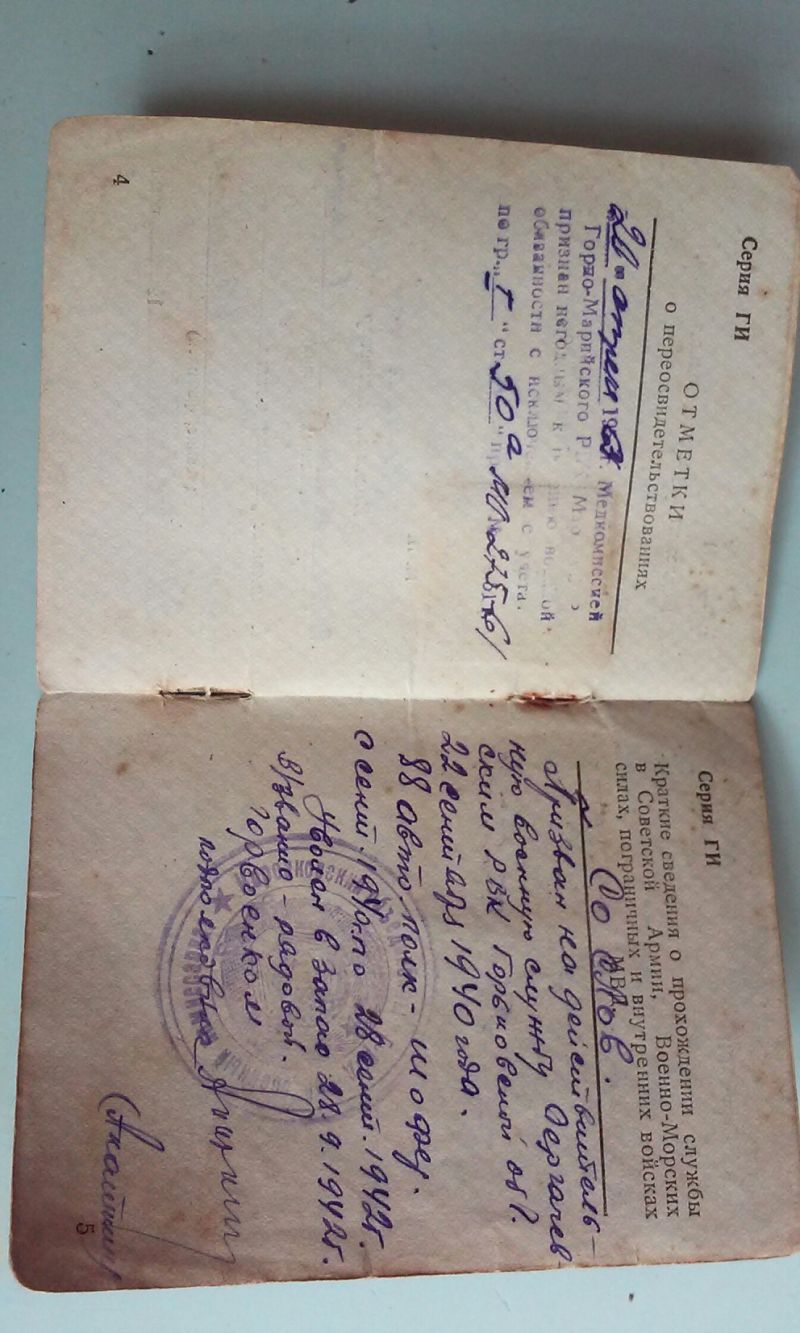 Серия ГИ
ОТМЕТКИ
о переосвидетельствованиях
"20" апреля 19 г. Медкомиссией
Горно-Марийского
признан негодным к военной
обязанности с исключением с учета.
по гр. "I" ст. 50 а
4
Серия ГИ
Краткие сведения о прохождении службы
в Советской Армии, Военно-Морских
силах, пограничных и внутренних войсках
МВД
Призван на действитель-
ную военную службу Дергачев-
ским РВК Горьковской обл.
22 сентября 1940 года.
88 авто-полк - шофер.
с сент. 1940 по 28 сент. 1942 г.
Уволен в запас 28.9.1942 г.
В/звание - рядовой.
Горвоенком
подполковник
5